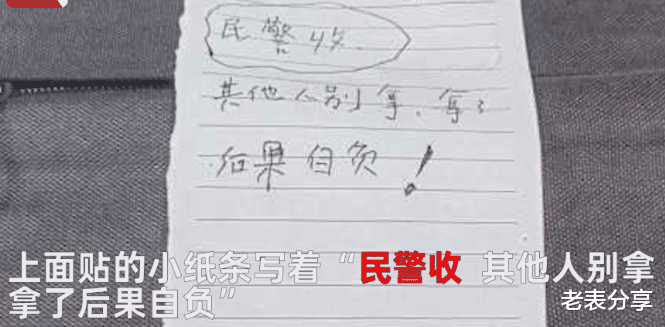 民警收
其他人别拿、拿了
后果自负!
上面贴的小纸条写着“民警收 其他人别拿
拿了后果自负”
老表分享